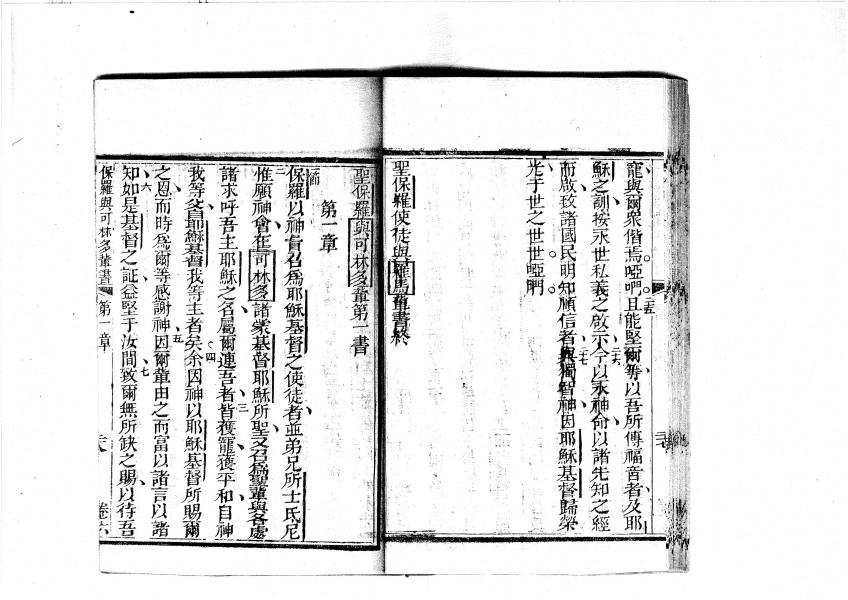 寵與爾衆偕焉啞𠵽且能堅爾等以吾所傳福音者及耶
穌之訓按永世私義之啟示今以永神命以諸先知之經
而啟致諸國民明知順信者與獨智神因耶穌基督歸榮
光于世之世世啞𠵽
聖保羅使徒與羅馬輩書終
聖保羅與可林多輩第一書
第一章
保羅以神旨召為耶穌基督之使徒者並弟兄所士氏尼
惟願神會在可林多諸衆基督耶穌所聖又召為聖輩與各處
諸求呼吾主耶穌之名屬爾連吾者皆獲寵獲平和自神
我等父自耶穌基督我等主者矣余因神以耶穌基督所賜爾
之恩而時為爾等感謝神因爾輩由之而富以諸言以諸
知如是基督之証益堅于汝間致爾無所缺之賜以待吾
保羅與可林多輩書 第一章 卷六